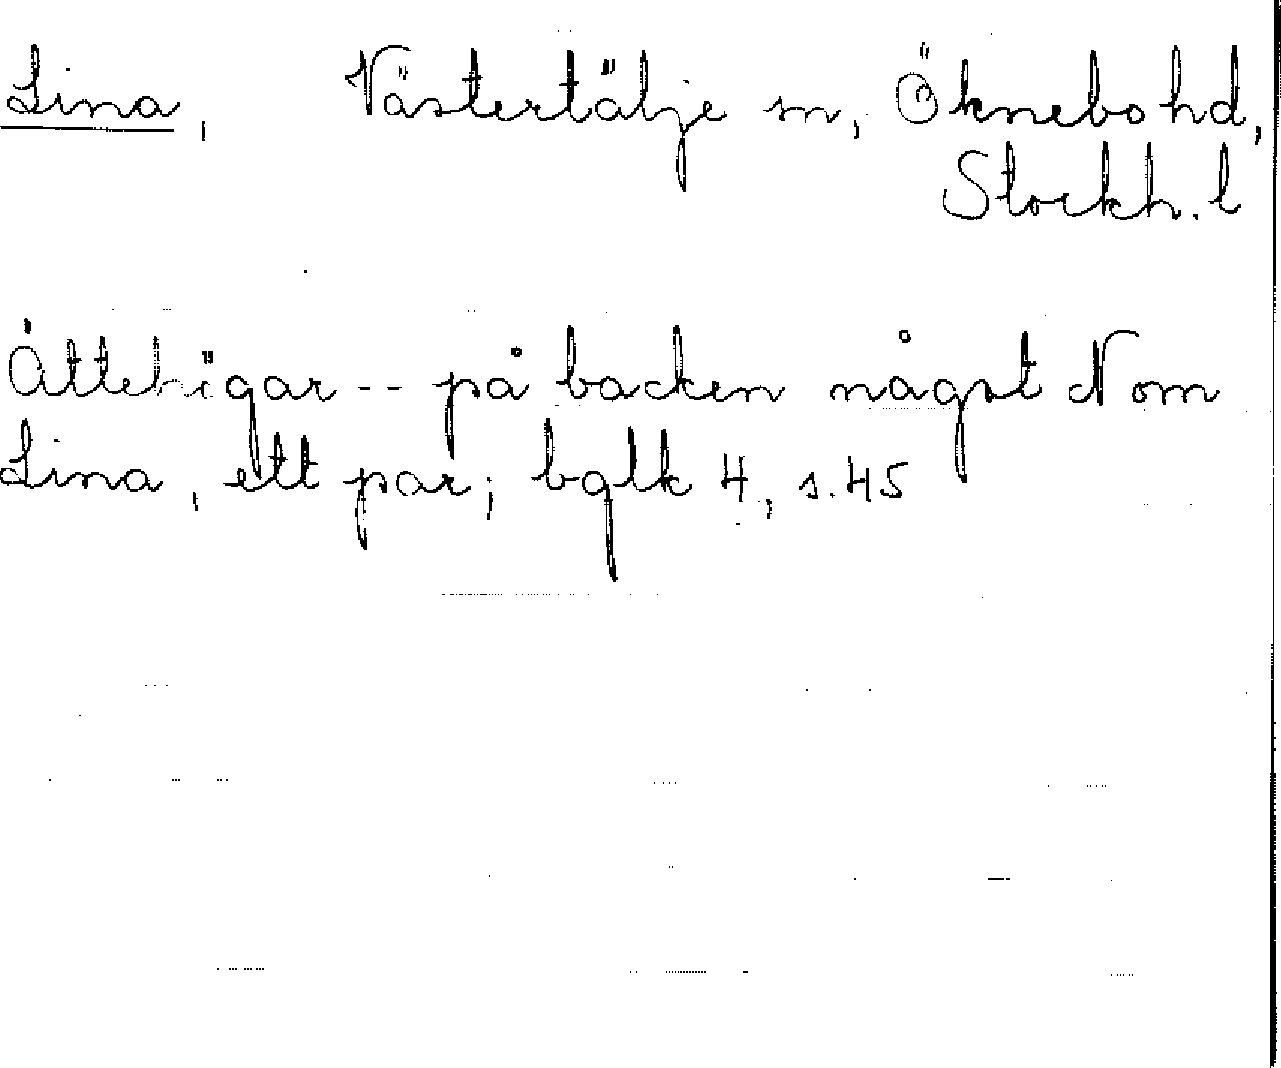 Lina, Västertälje sn, Öknebo hd,
Stockh. l
Ättehögar -- på backen något N om
Lina, ett par; bglk 4, s. 45